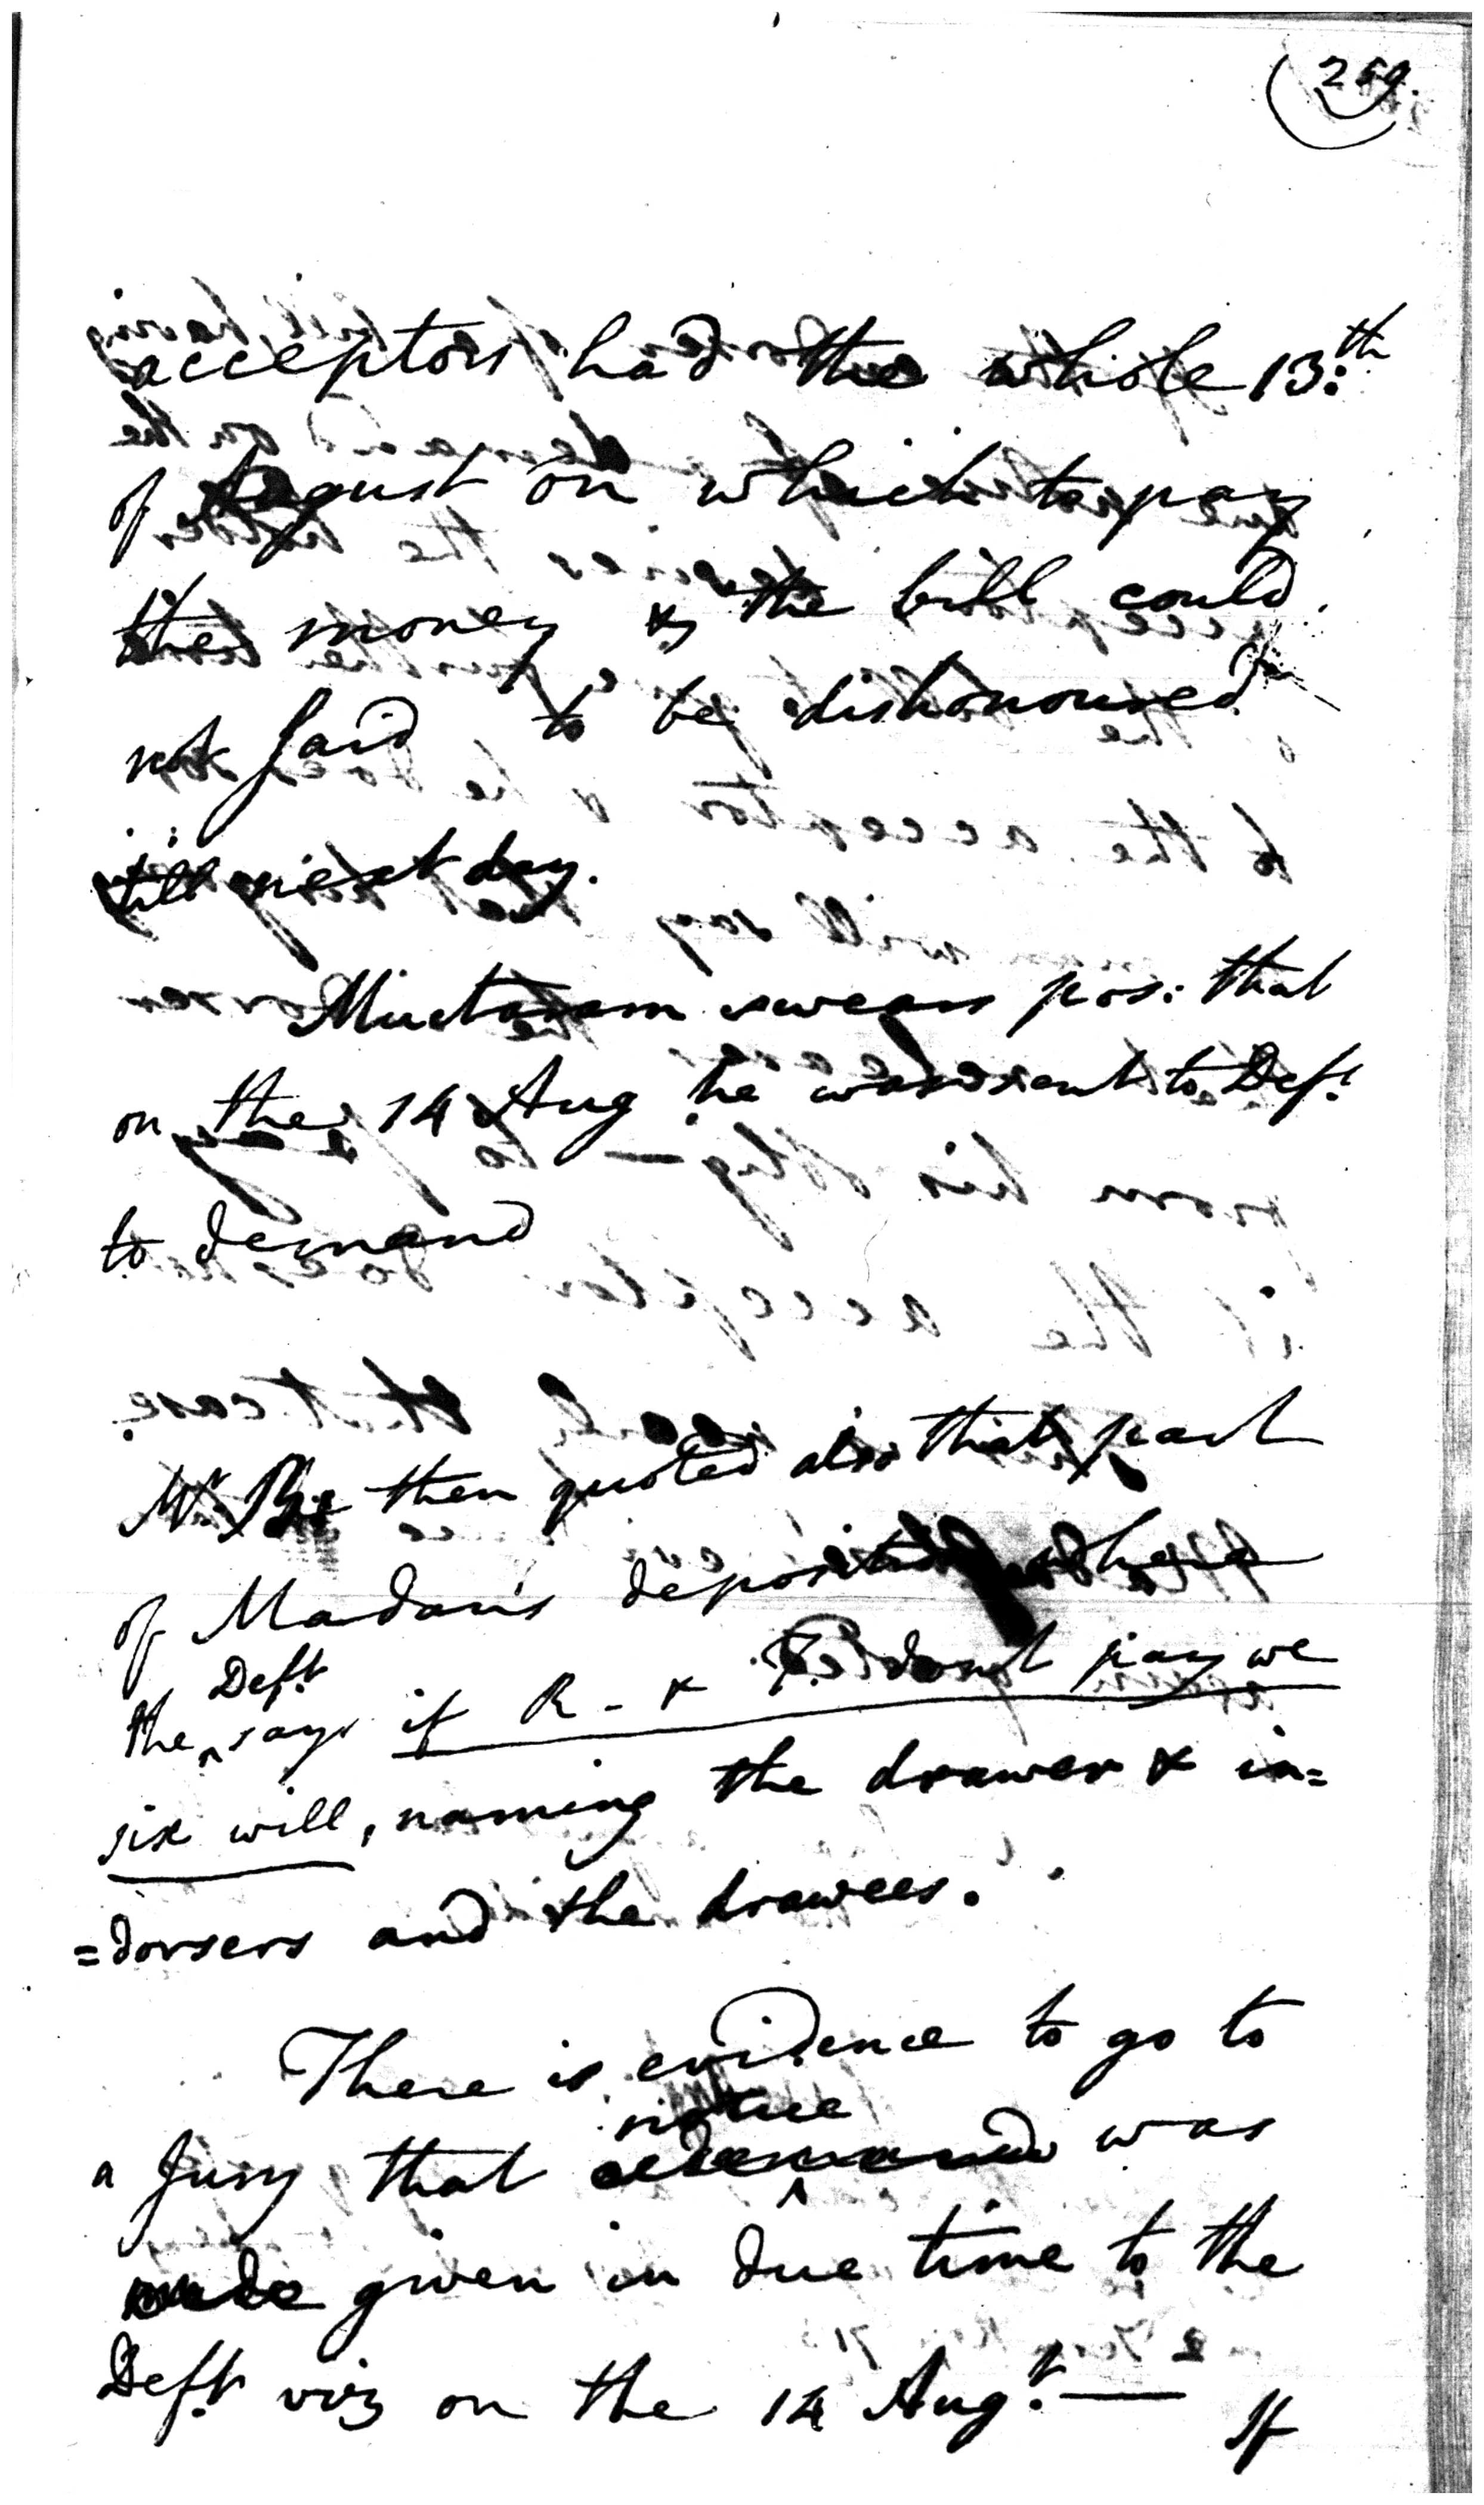 259.
acceptors had the whole 13:th
of August on which to pay
the money & the bill could
not said to be dishonoured
till next day.
swears pos: that
on the 14 Aug he was sent to Deft
to demand
Mr then quoted also that part
of Madan's deposition where
the Deft says if R - & F. don't pay we
six will, naming the drawer & in=
=dorsers and the drawees.
There is evidence to go to
a Jury that a demand notice was
made given in due time to the
Deft viz on the 14 Augt. —
If